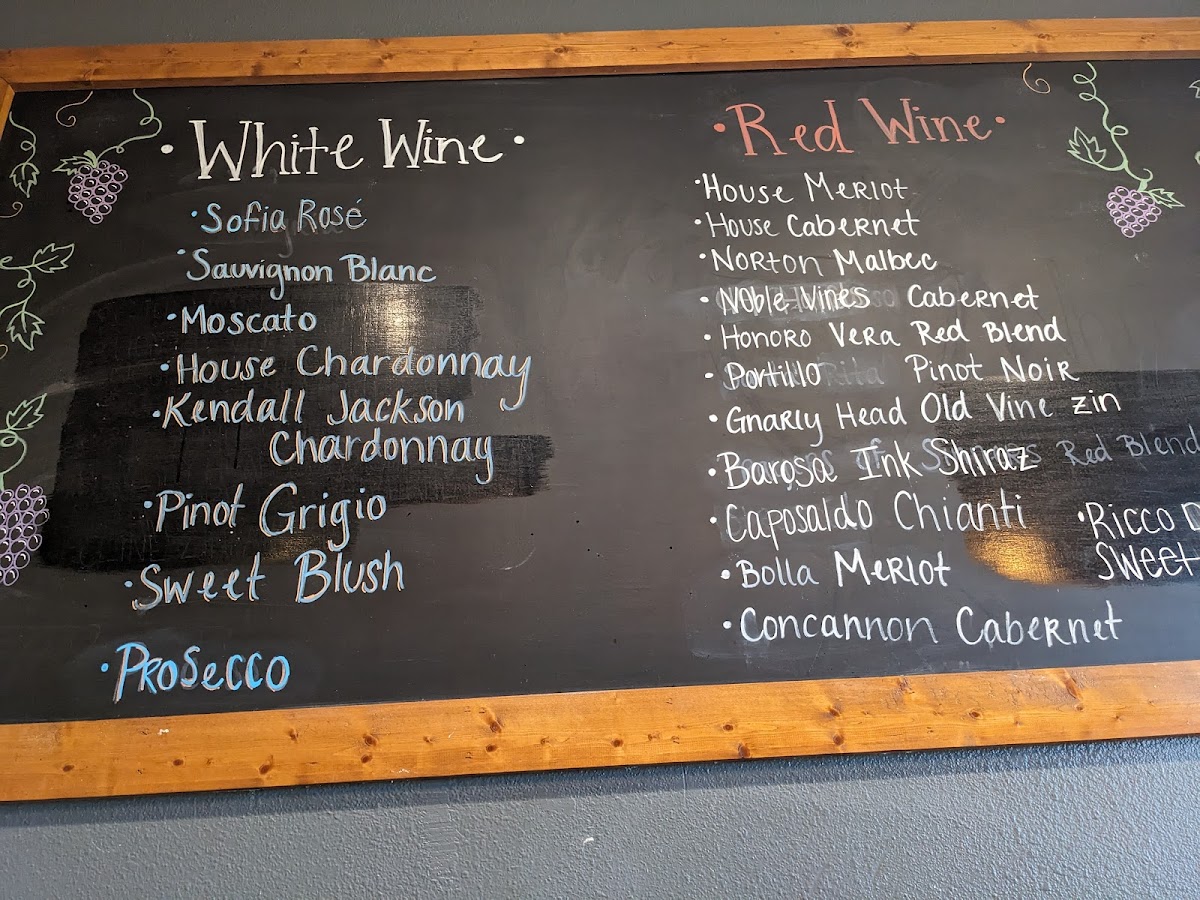 • White Wine •
• Sofia Rosé
• Sauvignon Blanc
• Moscato
• House Chardonnay
• Kendall Jackson
Chardonnay
• Pinot Grigio
• Sweet Blush
• Prosecco
• Red Wine •
• House Merlot
• House Cabernet
• Norton Malbec
• Noble Vines Cabernet
• Honoro Vera Red Blend
• Portillo Pinot Noir
• Gnarly Head Old Vine Zin
• Barosa Ink Shiraz Red Blend
• Caposaldo Chianti
• Bolla Merlot
• Concannon Cabernet
• Ricco
Sweet